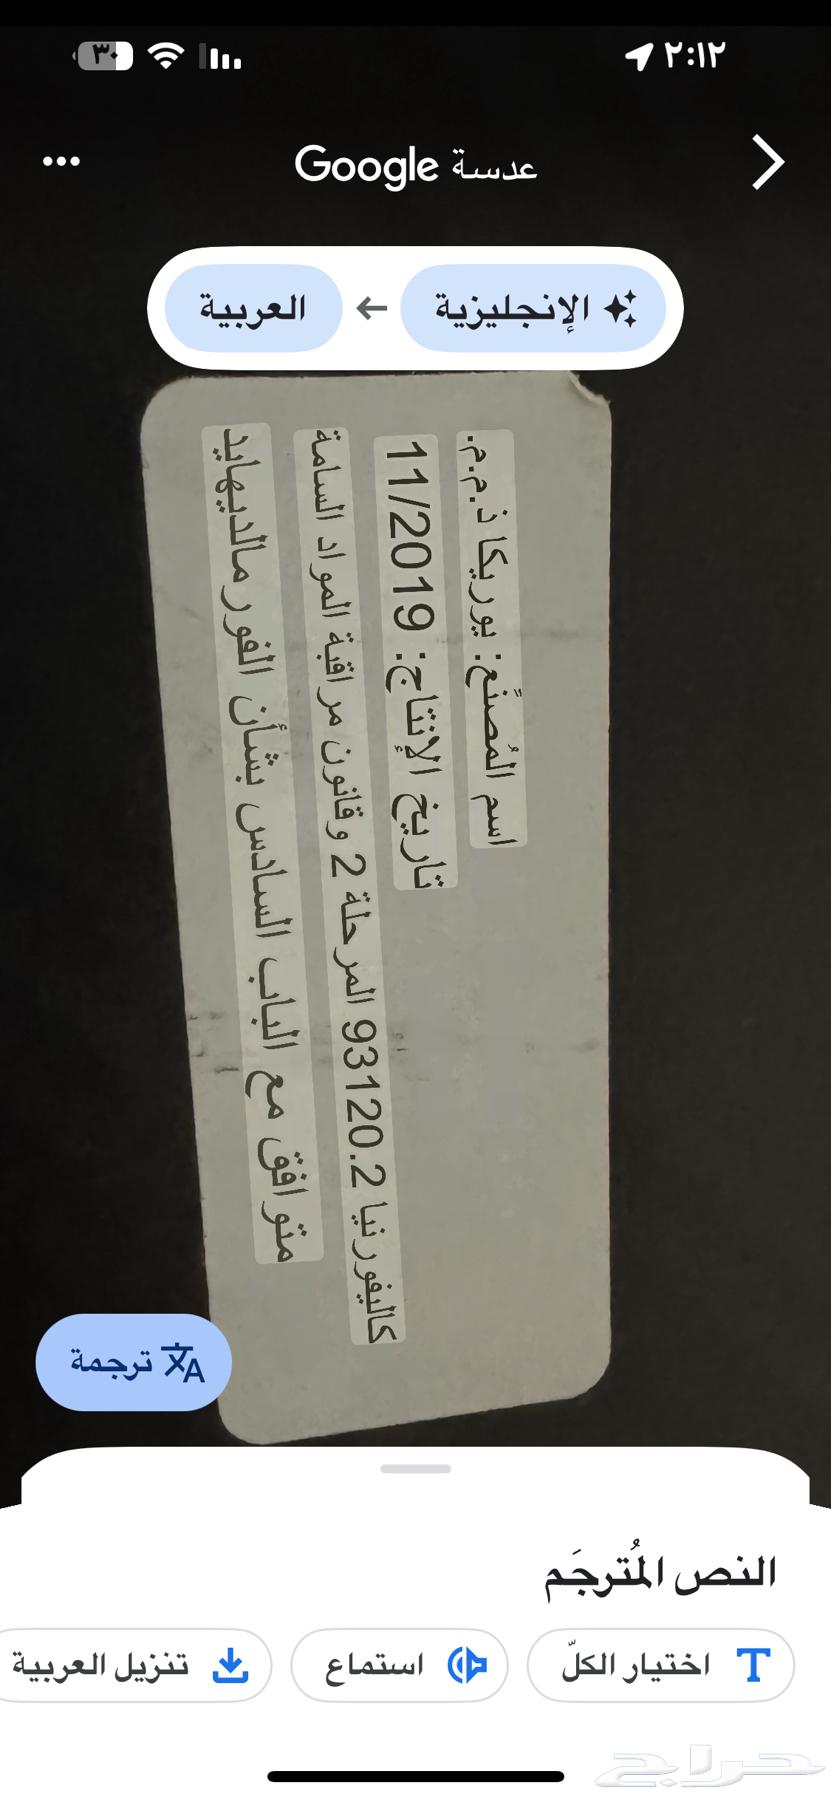 ٢:١٢
٣٠
عدسة Google
الإنجليزية
العربية
اسم المُصنِّع: يوريكا ذ.م.م.
تاريخ الإنتاج: 11/2019
كاليفورنيا 93120.2 المرحلة 2 وقانون مراقبة المواد السامة
متوافق مع الباب السادس بشأن الفورمالديهايد
ترجمة
النص المُترجَم
اختيار الكلّ
استماع
تنزيل العربية
حراج